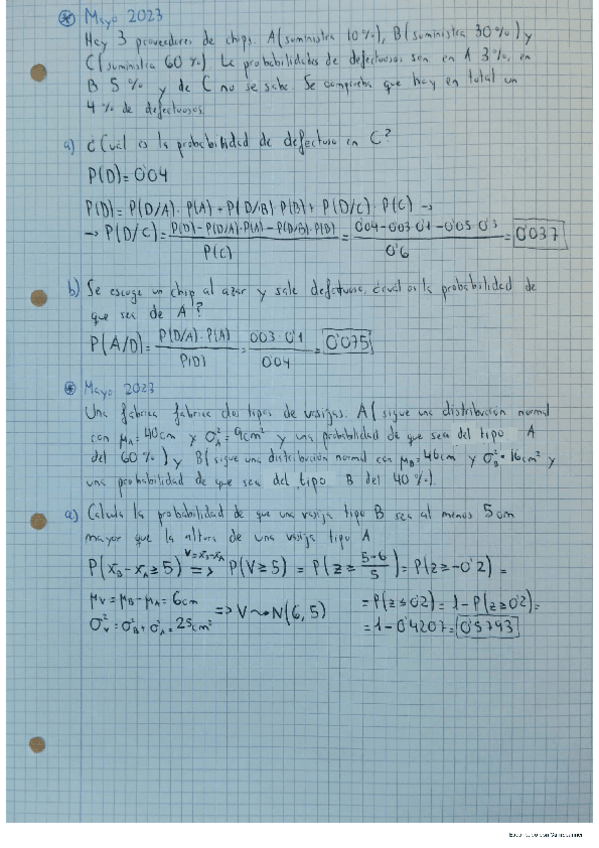 ⊛ Mayo 2023
Hay 3 proveedores de chips. A (suministra 10%), B (suministra 30%) y
C (suministra 60%). Le probabilidades de defectuosos son en A 3%, en
B 5% y de C no se sabe. Se comprueba que hay en total un
4% de defectuosos.
a) ¿Cual es la probabilidad de defectuoso en C?
P(D)=0'04
P(D)=P(D/A)·P(A)+P(D/B)·P(B)+P(D/C)·P(C) →
→ P(D/C)= P(D)-P(D/A)·P(A)-P(D/B)·P(D) / P(C) = 0'04-0'03·0'1-0'05·0'3 / 0'6 = 0'037
b) Se escoge un chip al azar y sale defectuoso, ¿cual es la probabilidad de
que sea de A?
P(A/D)= P(D/A)·P(A) / P(D) = 0'03·0'1 / 0'04 = 0'075
⊛ Mayo 2023
Una fabrica fabrica dos tipos de vasijas. A (sigue una distribución normal
con μA=40cm y σA²=9cm² y una probabilidad de que sea del tipo A
del 60%) y B (sigue una distribución normal con μB=46cm y σB²=16cm² y
una probabilidad de que sea del tipo B del 40%).
a) Calcula la probabilidad de que una vasija tipo B sea al menos 5cm
mayor que la altura de una vasija tipo A
P(xB-xA≥5) V=xB-xA => P(V≥5) = P(z≥ 5-6 / 5) = P(z≥-0'2) =
μV=μB-μA=6cm
σV²=σB²+σA²=25cm²
=> V~>N(6,5)
=P(z≤0'2)=1-P(z≥0'2)=
=1-0'4207=0'5793